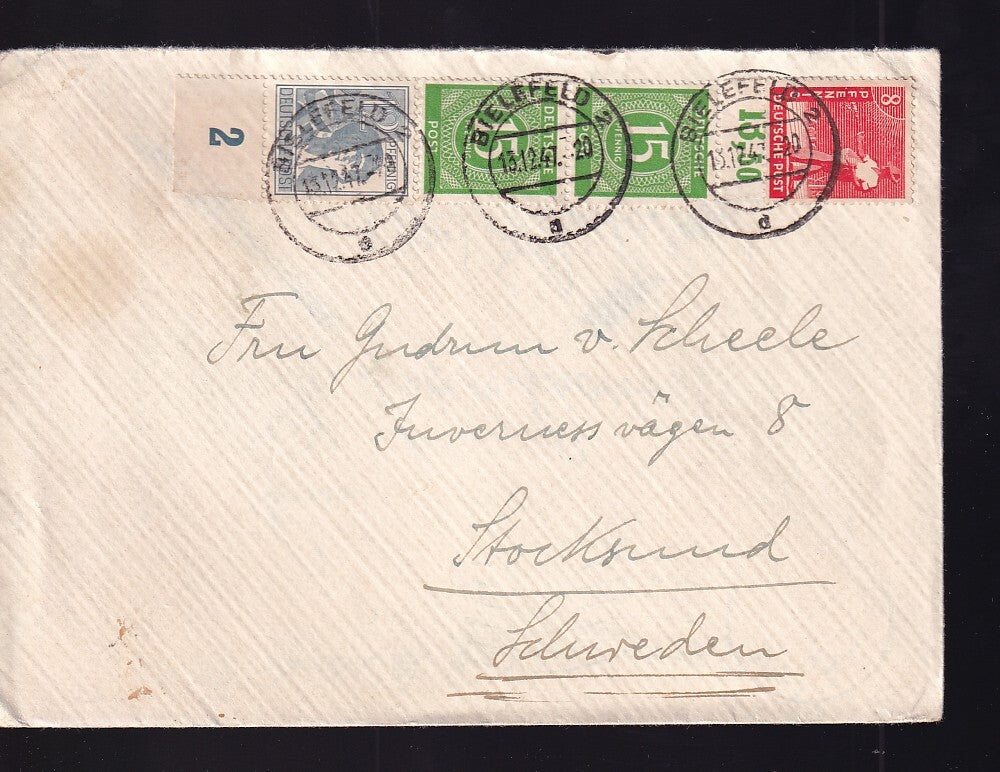 2
DEUTSCHE POST
12
PFENNIG
BIELEFELD 2
13.12.47.
a
POST
15
DEUTSCHE
PFENNIG
15
BIELEFELD 2
13.12.47.-20
a
BIELEFELD 2
13.12.47.-20
d
8
PFENNIG
DEUTSCHE POST
Frau Gudrun v. Scheele
Invernessvägen 8
Stocksund
Schweden